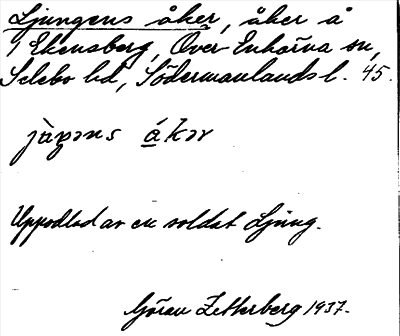 Ljungens åker, åker å
1 Ekensberg, Över Enhörna sn,
Selebo hd, Södermanlands l. 45.
jùŋəns åkər
Uppodlad av en soldat Ljung.
Göran Zetterberg 1937.